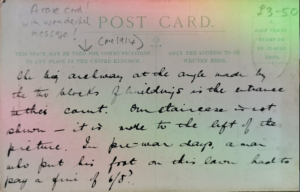 A rare card!
with wonderful
message!
(c 1914)
£3-50
POST CARD.
THIS SPACE MAY BE USED FOR COMMUNICATIONS
TO ANY PLACE IN THE UNITED KINGDOM.
ONLY THE ADDRESS TO BE
WRITTEN HERE.
The big archway at the angle made by
the two blocks of buildings is the entrance
to this court. Our staircase is not
shown — it is more to the left of the
picture. In pre-war days, a man
who put his foot on this lawn had to
pay a fine of 6/8?